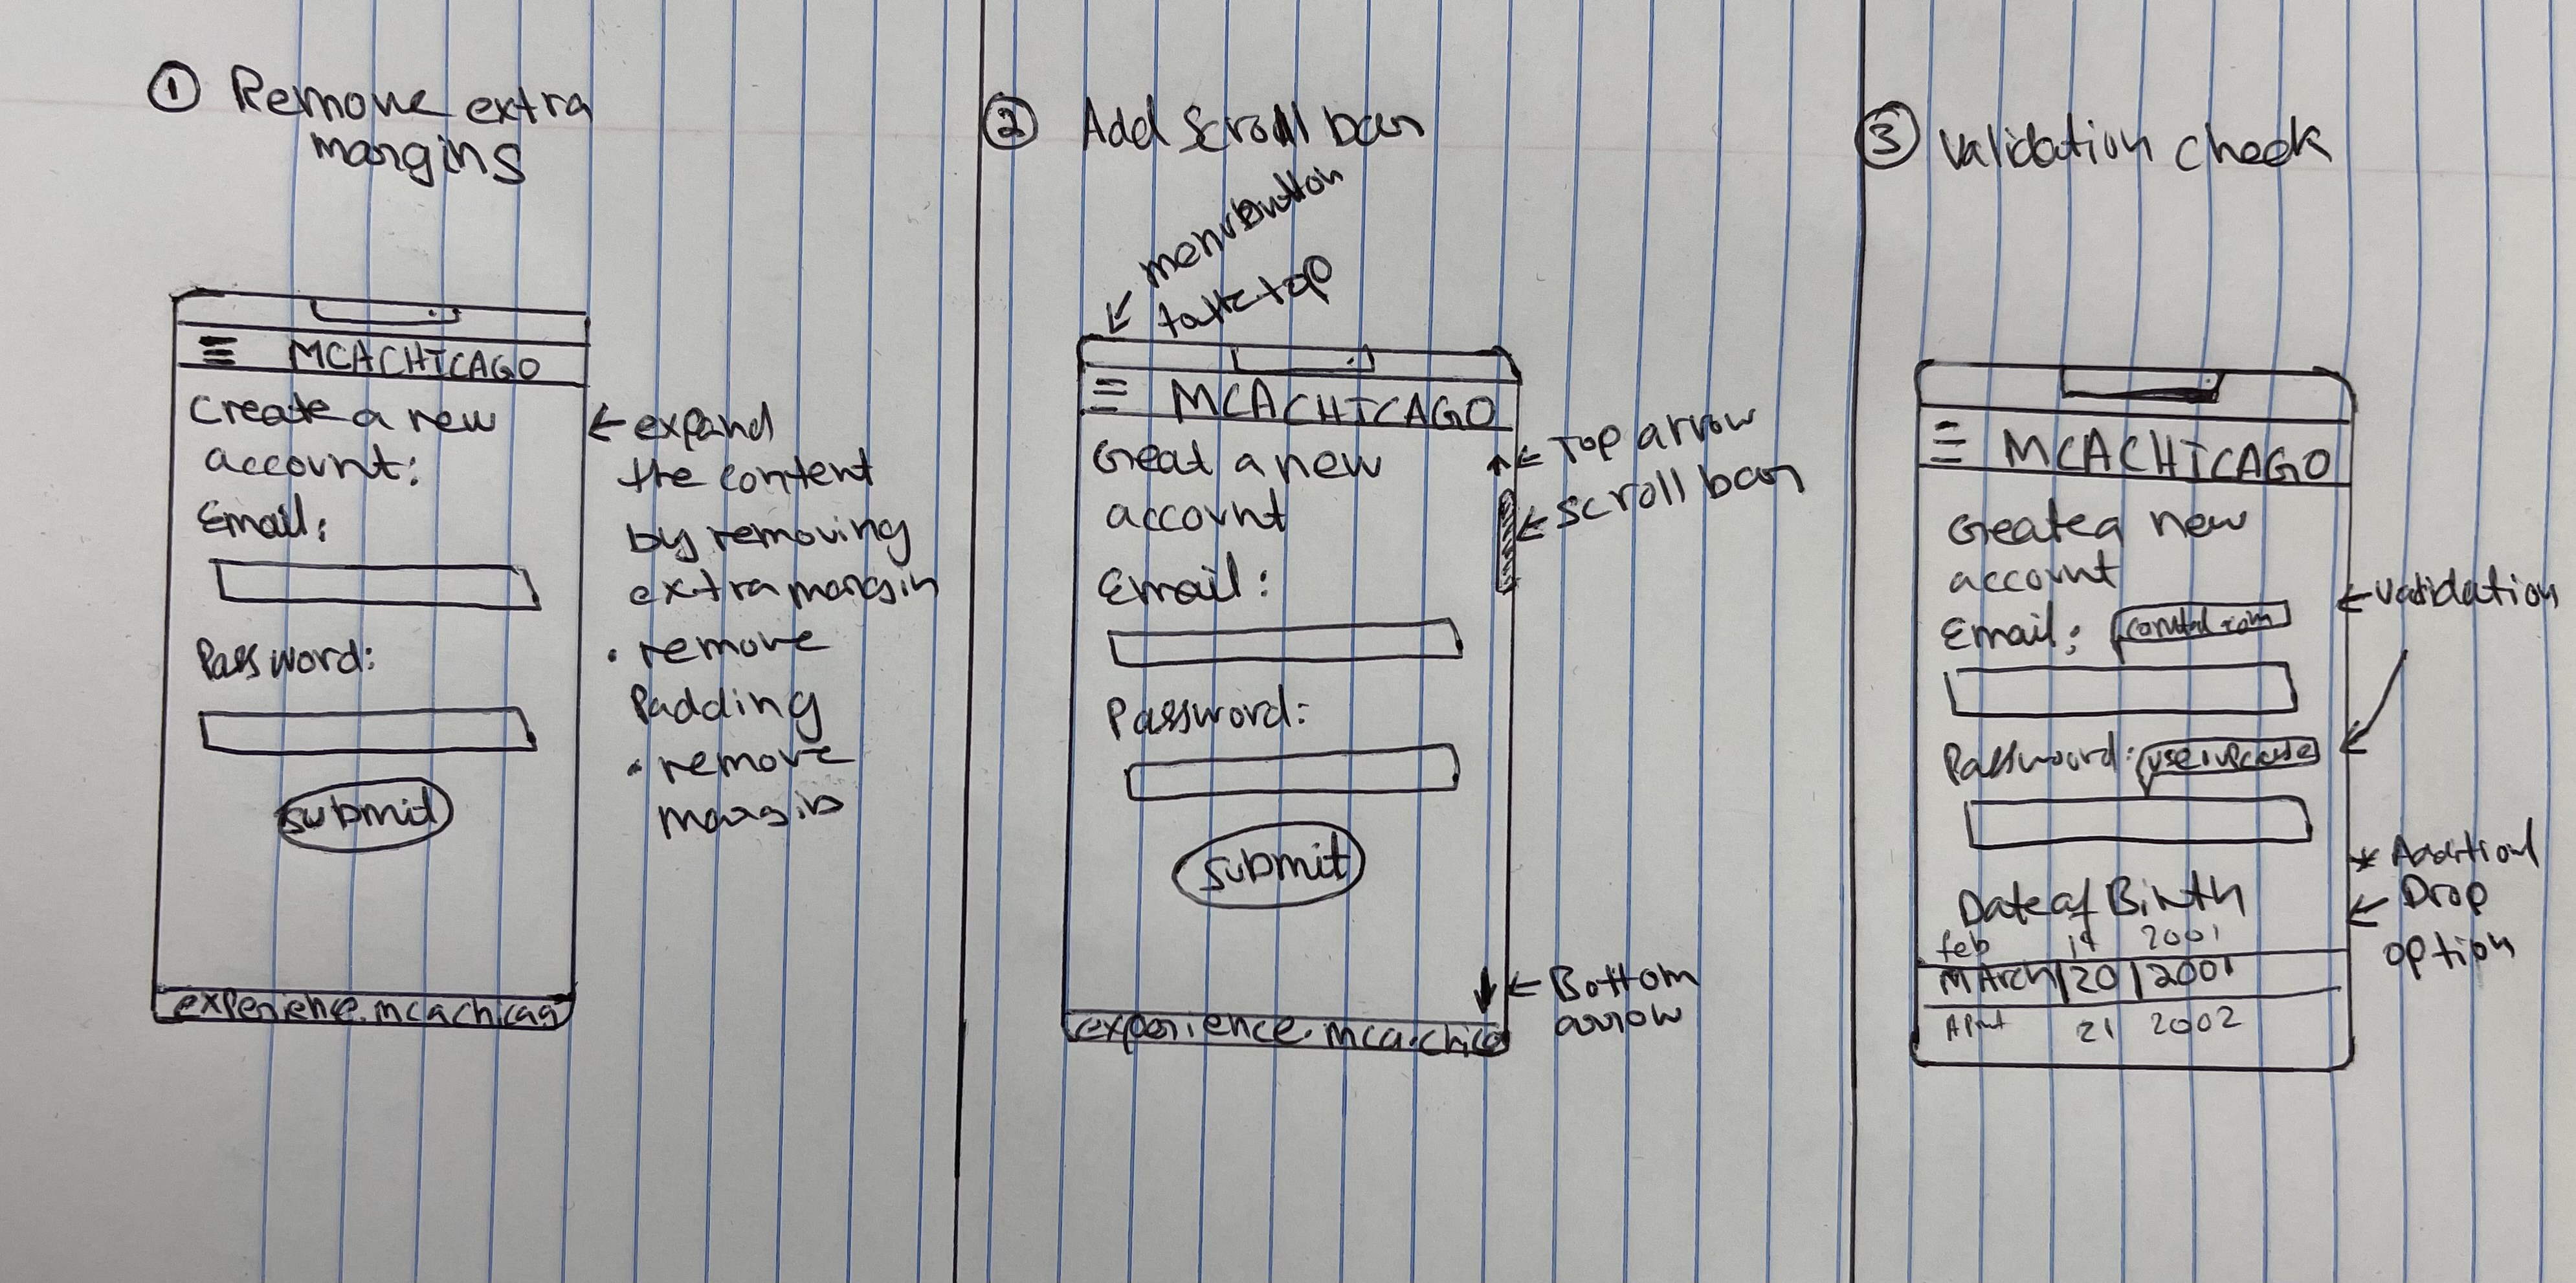 ① Remove extra
margins
≡ MCACHICAGO
Create a new
account:
Email:
Password:
submit
experience.mcachicag
← expand
the content
by removing
extra margin
• remove
Padding
• remove
margin
② Add scroll bar
menu button
to the top
≡ MCACHICAGO
Creat a new
account
Email:
Password:
submit
experience.mca.chica
← Top arrow
← scroll bar
← Bottom
arrow
③ Validation check
≡ MCACHICAGO
Create a new
account
Email:
Password:
Date of Birth
feb 19 2001
MArch | 20 | 2001
21 2002
← validation
← Drop
option